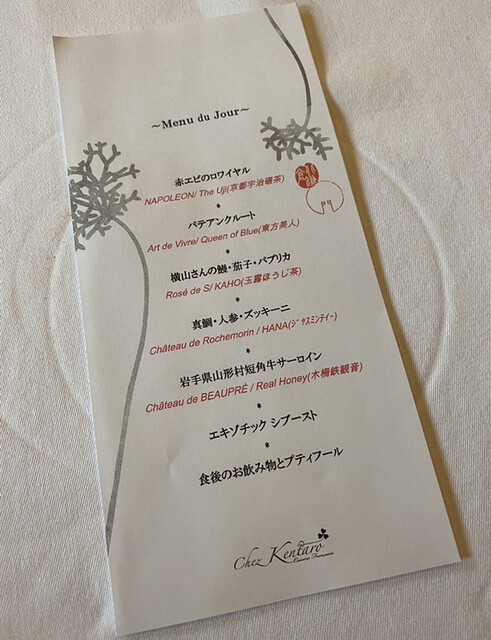 ~Menu du Jour~
赤エビのロワイヤル
NAPOLEON/ The Uji(京都宇治碾茶)
*
パテアンクルート
Art de Vivre/ Queen of Blue(東方美人)
*
横山さんの鰻・茄子・パプリカ
Rosé de S/ KAHO(玉露ほうじ茶)
*
真鯛・人参・ズッキーニ
Château de Rochemorin / HANA(ｼﾞｬｽﾐﾝﾃｨｰ)
*
岩手県山形村短角牛サーロイン
Château de BEAUPRÉ / Real Honey(木柵鉄観音)
*
エキゾチック シブースト
*
食後のお飲み物とプティフール
Chez Kentaro
Cuisine Française